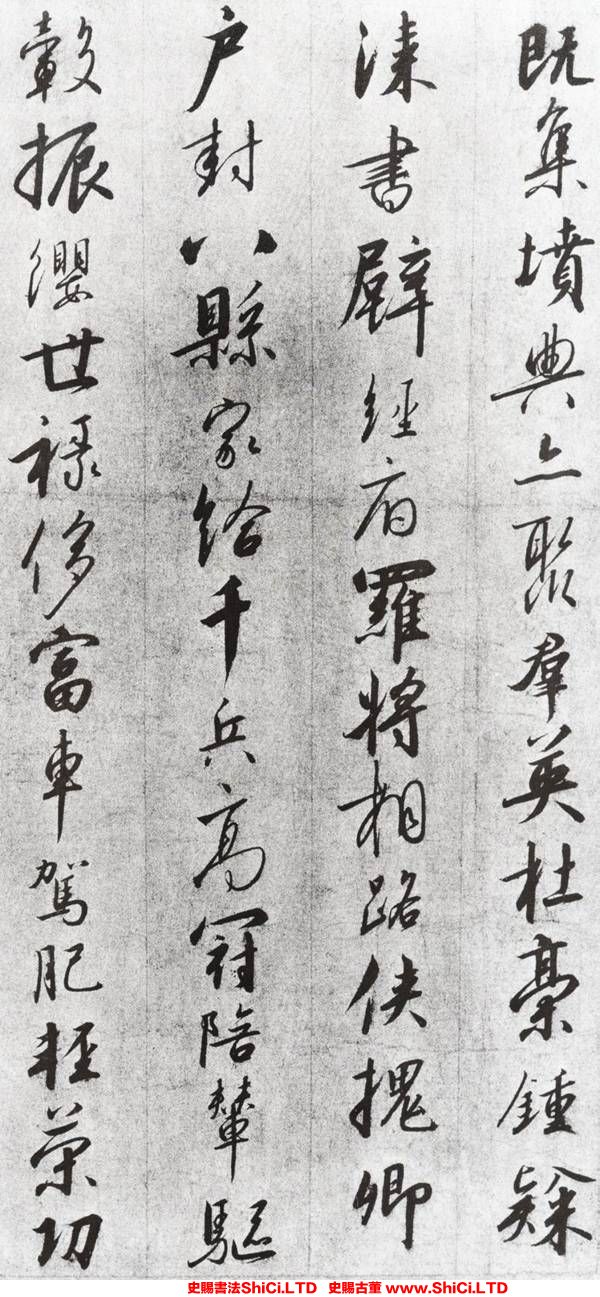 既集墳典亦聚群英杜稾鍾隸
漆書壁經府羅將相路俠槐卿
户封八縣家給千兵高冠陪輦驅
轂振纓世祿侈富車駕肥輕策功
史賜書法ShiCi.LTD 史賜古董 www.ShiCi.LTD